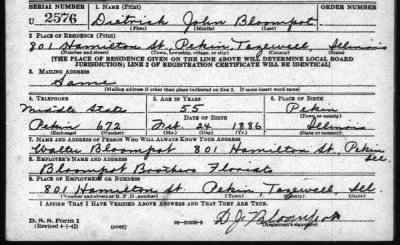 SERIAL NUMBER 1. NAME (Print) ORDER NUMBER
U 2576 Dietrick John Bloompot
(First) (Middle) (Last)
2. PLACE OF RESIDENCE (Print)
801 Hamilton St, Pekin, Tazewell, Illinois
(Number and street) (Town, township, village, or city) (County) (State)
[THE PLACE OF RESIDENCE GIVEN ON THE LINE ABOVE WILL DETERMINE LOCAL BOARD
JURISDICTION; LINE 2 OF REGISTRATION CERTIFICATE WILL BE IDENTICAL]
3. MAILING ADDRESS
Same
[Mailing address if other than place indicated on line 2. If same insert word same]
4. TELEPHONE 5. AGE IN YEARS 6. PLACE OF BIRTH
Middle States 55 Pekin
DATE OF BIRTH (Town or county)
Pekin 672 Oct. 24 1886 Illinois
(Exchange) (Number) (Mo.) (Day) (Yr.) (State or country)
7. NAME AND ADDRESS OF PERSON WHO WILL ALWAYS KNOW YOUR ADDRESS
Walter Bloompot 801 Hamilton St, Pekin
Ill.
8. EMPLOYER'S NAME AND ADDRESS
Bloompot Brothers Florists
9. PLACE OF EMPLOYMENT OR BUSINESS
801 Hamilton St. Pekin, Tazewell, Ill.
(Number and street or R. F. D. number) (Town) (County) (State)
I AFFIRM THAT I HAVE VERIFIED ABOVE ANSWERS AND THAT THEY ARE TRUE.
D. S. S. Form 1 D.J. Bloompot
(Revised 4-1-42) (over) (Registrant's signature)